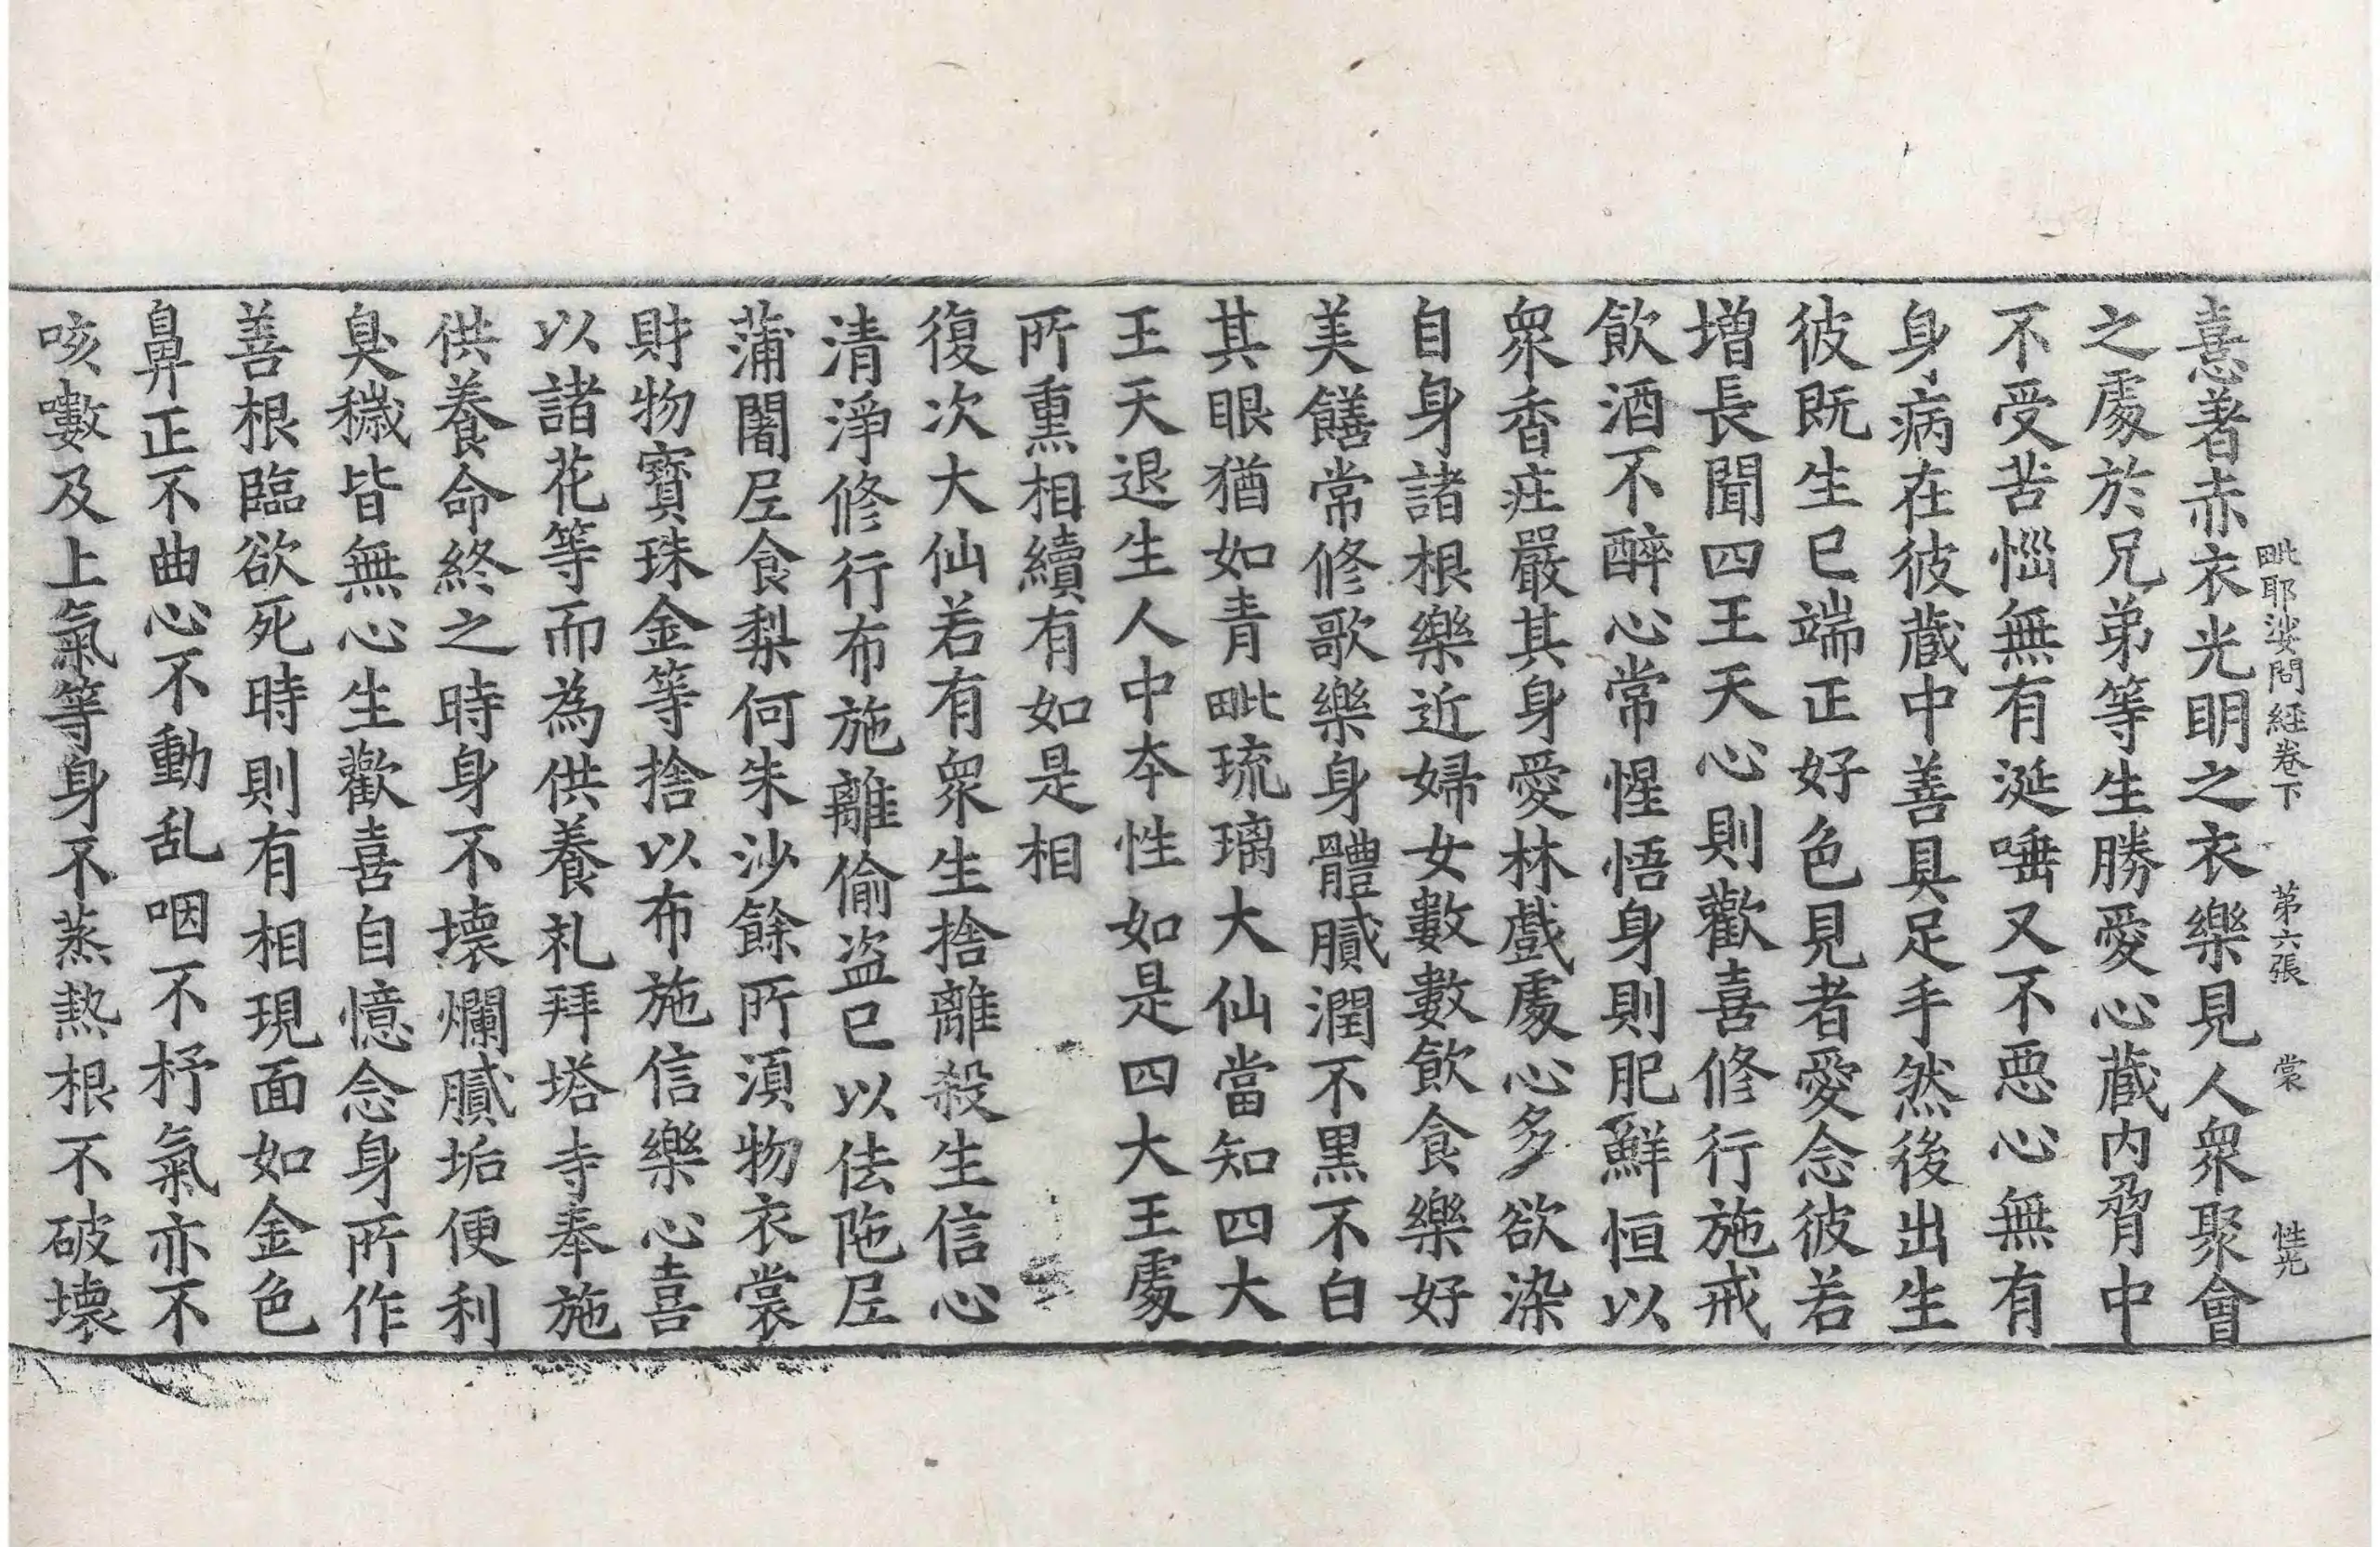 毗耶娑問經卷下 第六張 裳 性光
憙著赤衣光明之衣樂見人衆聚會
之處於兄弟等生勝愛心藏內胷中
不受苦惱無有涎唾又不惡心無有
身病在彼藏中善具足手然後出生
彼既生已端正好色見者愛念彼若
增長聞四王天心則歡喜修行施戒
飲酒不醉心常惺悟身則肥鮮恒以
衆香莊嚴其身愛林戲處心多欲染
自身諸根樂近婦女數數飲食樂好
美饍常修歌樂身體膩潤不黑不白
其眼猶如青毗琉璃大仙當知四大
王天退生人中本性如是四大王處
所熏相續有如是相
復次大仙若有衆生捨離殺生信心
清淨修行布施離偷盜已以佉陁尼
蒲闍尼食梨何朱沙餘所湏物衣裳
財物寶珠金等捨以布施信樂心喜
以諸花等而為供養礼拜塔寺奉施
供養命終之時身不壞爛膩垢便利
臭穢皆無心生歡喜自憶念身所作
善根臨欲死時則有相現面如金色
鼻正不曲心不動乱咽不抒氣亦不
咳嗽及上氣等身不蒸熱根不破壞